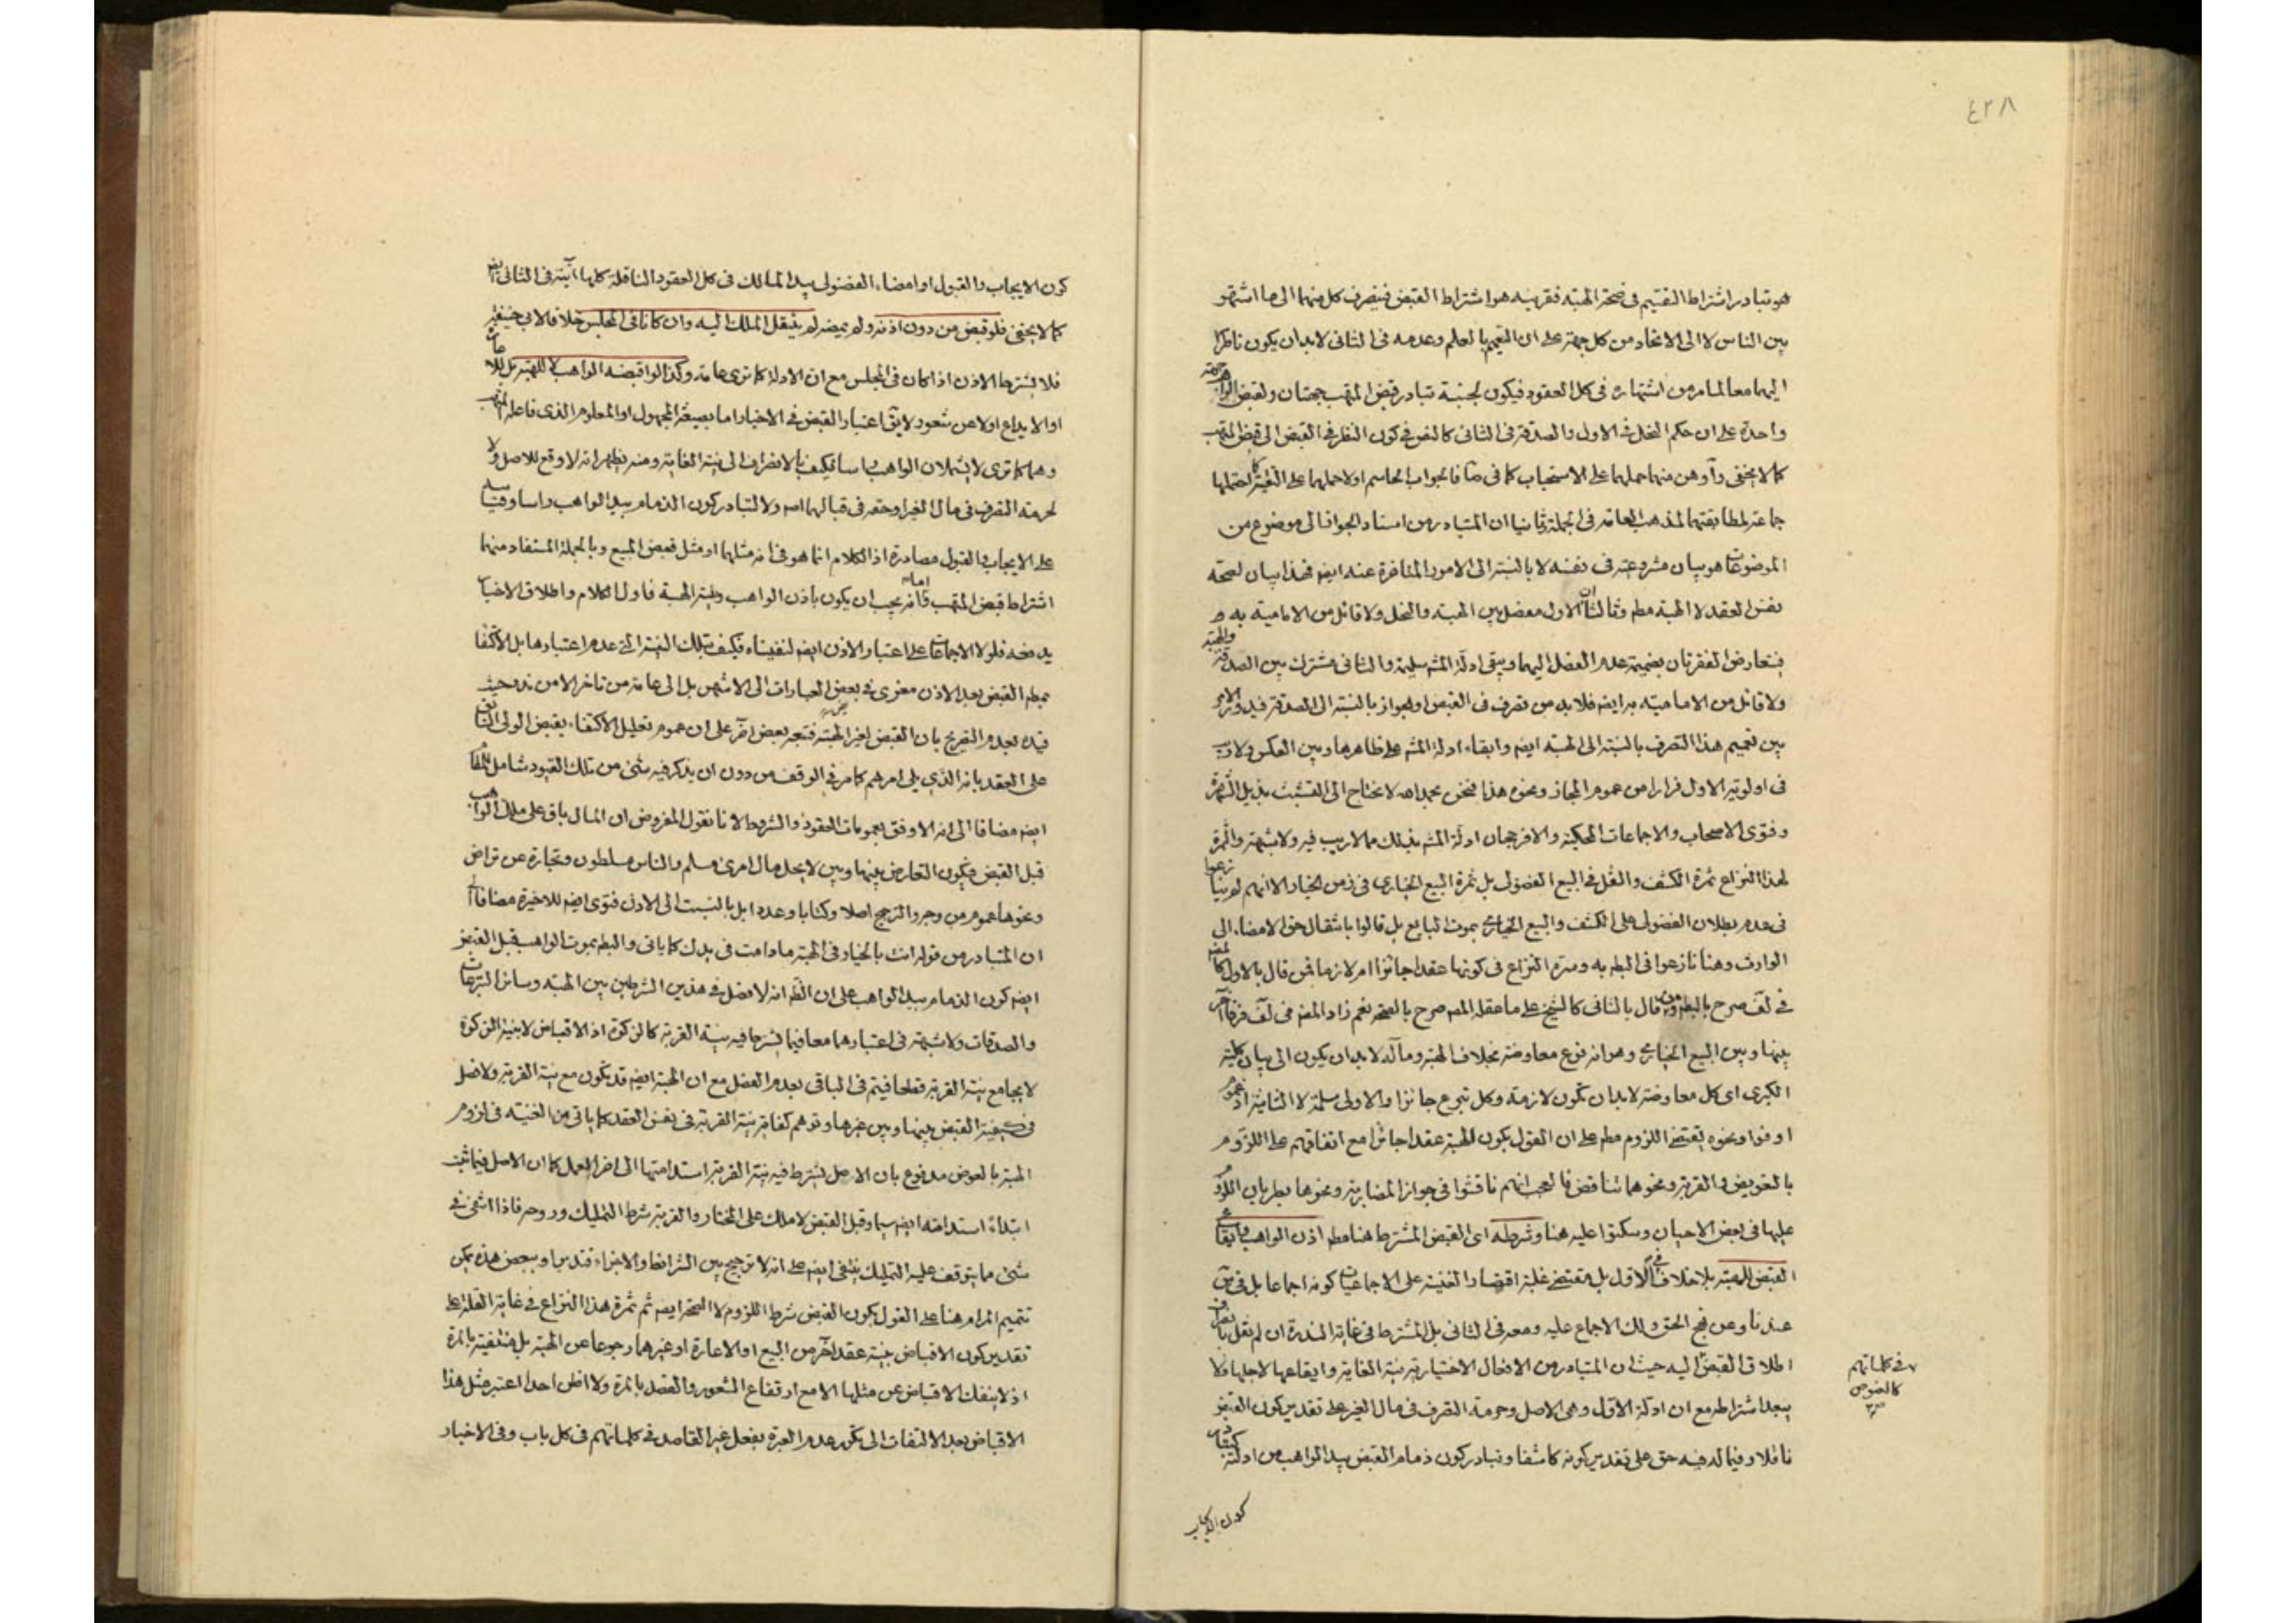 ٤٢٨
هو تبادر اشتراط التقسيم فى صحة الهبة فقرينه هو اشتراط القبض فينصرف كل منهما الى ما اشتهر
بين الناس لا الى الاتحاد من كل جهة على ان التعميم بالعلم وعدمه فى الثانى لا بد ان يكون ناظرا
اليهما معا لما مر من اشتهاره فى كل العقود فيكون لجنبة تبادر قبض المتهب جهتان ولقبض الواهب جهة
واحدة على ان حكم النحل فى الاول والصدقة فى الثانى كالنص فى كون النظر فى القبض الى قبض المتهب
كما لا يخفى وأوهن منهما حملهما على الاستحباب كما فى فالجواب الحاسم اولا حملهما على التقية كما احتملها
جماعة لمطابقتهما لمذهب العامة فى الجملة وثانيا ان المتبادر من اسناد الجواز الى موضوع من
الموضوعات هو بيان مشروعيته فى نفسه لا بالنسبة الى الامور المتأخرة عنه ايضا فهذا بيان لصحة
نفس العقد لا الهبة مطم وثالثا ان الاول مفصل بين الهبة والنحل ولا قائل من الامامية به
فيتعارض الفقرتان بضميمة عدم الفصل اليهما ويبقى ادلة المشه سليمة والثانى مشترك بين الصدقة والهبة
ولا قائل من الامامية به ايضا فلا بد من تصرف فى القبض او الجواز بالنسبة الى الصدقة فيدور الامر
بين تعميم هذا التصرف بالنسبة الى الهبة ايضا وابقاء ادلة المشه على ظاهرها وبين العكس ولا ريب
فى اولوية الاول فرارا من عموم المجاز ونحوه هذا فنحن بحمد الله لا نحتاج الى التشبث بذيل الشهرة
وفتوى الاصحاب والاجماعات المحكية والا فرجحان ادلة المشه بذلك مما لا ريب فيه ولا شبهة والثمرة
لهذا النزاع ثمرة الكشف والنقل فى البيع الفضولى بل ثمرة البيع الخيارى فى زمن الخيار الا انهم لم يتنازعوا
فى عدم بطلان الفضولى على الكشف والبيع الخيارى بموت البايع بل قالوا بانتقال حق الامضاء الى
الوارث وهنا نازعوا فى البطم به وسره النزاع فى كونها عقدا جائزا ام لازما فمن قال بالاول كالمص
فى لف صرح بالبطم ومن قال بالثانى كالشيخ على ما عقله المص صرح بالصحة نعم زاد المص فى لف فرقا آخر
بينها وبين البيع الخيارى وهو انه نوع معاوضة بخلاف الهبة ومآله لا بد ان يكون الى بيان كلية
الكبرى اى كل معاوضة لا بد ان تكون لازمة وكل تبرع جائزا والاولى مسلمة لا الثانية اذ عموم
اوفوا ونحوه يقتضى اللزوم مطم على ان القول بكون الهبة عقدا جائزا مع اتفاقهم على اللزوم
بالتعويض والقربة ونحوهما تناقض فالعجب انهم ناقشوا فى جواز المضاربة ونحوها بطريان اللزوم
عليها فى بعض الاحيان وسكتوا عليه هنا وشرطه اى القبض المشترط هنا مطم اذن الواهب وايقاع
القبض للهبة بلا خلاف فى الاول بل مقتضى غلبة اقتصار الغنية على الاجماعيات كونه اجماعا بل فى
عندنا وعن نهج الحق ولك الاجماع عليه ومعه فى الثانى بل المشترط فى غاية الندرة ان لم نقل بانصراف
اطلاق القبض اليه حيث ان المتبادر من الافعال الاختيارية نية الغاية وايقاعها لاجلها ولا
يبعد اشتراطه مع ان ادلة الاول وهى الاصل وحرمة التصرف فى مال الغير على تقدير كون القبض
ناقلا وفيما له فيه حق على تقدير كونه كاشفا وتبادر كون ذمام القبض بيد الواهب من ادلته
فى كلماتهم
كالنصوص
كون الايجاب
كون الايجاب والقبول او امضاء الفضولى بيد المالك فى كل العقود الناقلة كلها اتية فى الثانى ايضا
كما لا يخفى فلو قبض من دون اذنه ولم يمضه لم ينتقل الملك اليه وان كانا فى المجلس خلافا لابى حنيفة
فلا يشترط الاذن اذا كان فى المجلس مع ان الادلة كما ترى عامة وكذا لو اقبضه الواهب لا للهبة بل للاعارة
او الايداع او لا عن شعور لا يق اعتبار القبض فى الاخبار اما بصيغة المجهول او المعلوم الذى فاعله المتهب
وهما كما ترى لا يشملان الواهب راسا فكيف بالانصراف الى نية الغاية ومنه يظهر انه لا وقع للاصل ولا
لحرمة التصرف فى مال الغير او حقه فى قبالهما اصم ولا لتبادر كون الذمام بيد الواهب راسا وقياسه
على الايجاب والقبول مصادرة اذ الكلام انما هو فى انه مثلهما او مثل قبض المبيع وبالجملة المستفاد منهما
اشتراط قبض المتهب واما انه يجب ان يكون باذن الواهب ونية الهبة فاول الكلام واطلاق الاخبار
يدفعه فلولا الاجماعات على اعتبار الاذن ايضا لنفيناه فكيف بتلك النية التى عدم اعتبارها بل الاكتفاء
بمطم القبض بعد الاذن معزى فى بعض العبارات الى الاشهر بل الى عامة من تاخر الا من ندر حيث
قيده بعدم التصريح بان القبض لغير الهبة فتبعه بعض اخر على ان عموم تعليل الاكتفاء بقبض الولى السابق
على العقد بانه الذى يلى امرهم كما مر فى الوقف من دون ان يذكر فيه شئ من تلك القيود شامل للمقام
ايضا مضافا الى انه الاوفق بعمومات العقود والشروط لانا نقول المفروض ان المال باق على ملك الواهب
قبل القبض فيكون التعارض بينها وبين لا يحل مال امرئ مسلم والناس مسلطون وتجارة عن تراض
ونحوها عموم من وجه والترجيح اصلا وكتابا وعددا بل بالنسبة الى الاذن فتوى ايضا للاخيرة مضافا الى
ان المتبادر من قوله انت بالخيار فى الهبة ما دامت فى يدك كما ياتى والبطم بموت الواهب قبل القبض
ايضا كون الذمام بيد الواهب على ان الظم انه لا فصل فى هذين الشرطين بين الهبة وسائر التبرعات
والصدقات ولا شبهة فى اعتبارهما معا فيما يشترط فيه نية القربة كالزكوة اذ الاقباض لا بنية الزكوة
لا يجامع نية القربة قطعا فيتم فى الباقى بعدم الفصل مع ان الهبة ايضا قد تكون مع نية القربة ولا فصل
فى كيفية القبض بينها وبين غيرها وتوهم كفاية نية القربة فى نفس العقد كما ياتى من الغنية فى لزوم
الهبة بالعوض مدفوع بان الاصل يشترط فيه نية القربة استدامتها الى اخر العمل كما ان الاصل فيما ثبت
ابتداء استدامته ايضا سيما وقبل القبض لا ملك على المختار والقربة شرط التمليك وروحه فاذا انتفى فى
شئ مما يتوقف عليه التمليك ينتفى ايضا على انه لا ترجيح بين الشرائط والاجزاء فتدبر وببعض هذه يمكن
تتميم المرام هنا على القول بكون القبض شرط اللزوم لا الصحة ايضا ثم ثمرة هذا النزاع فى غاية القلة على
تقدير كون الاقباض بنية عقد آخر من البيع او الاعارة او غيرهما رجوعا عن الهبة بل منتفية بالمرة
اذ لا ينفك الاقباض عن مثلها الا مع ارتفاع الشعور والقصد بالمرة ولا اظن احدا اعتبر مثل هذا
الاقباض بعد الالتفات الى تكرر عدم العبرة بفعل غير القاصد فى كلماتهم فى كل باب وفى الاخبار